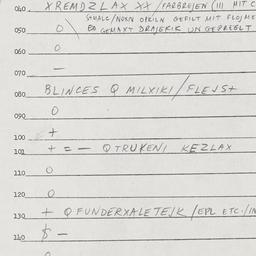 040. XREMDZLAX XX / FARBREJEN (III MIT C
GMALC/NOXN OPKILN GEFILT MIT FLOJME
050 O \ BO GEMAXT DRAJEKIK UN GEPREGLT
060 O
070 —
080 BLINCES Q MILXIKI / FLEJSH
090 O
100 +
101 + = — Q TRUKENI KEZLAX
110 O
120 O
130 + Q FUNDERXALE TEJK / EPL ETC. / IN
140 $ —